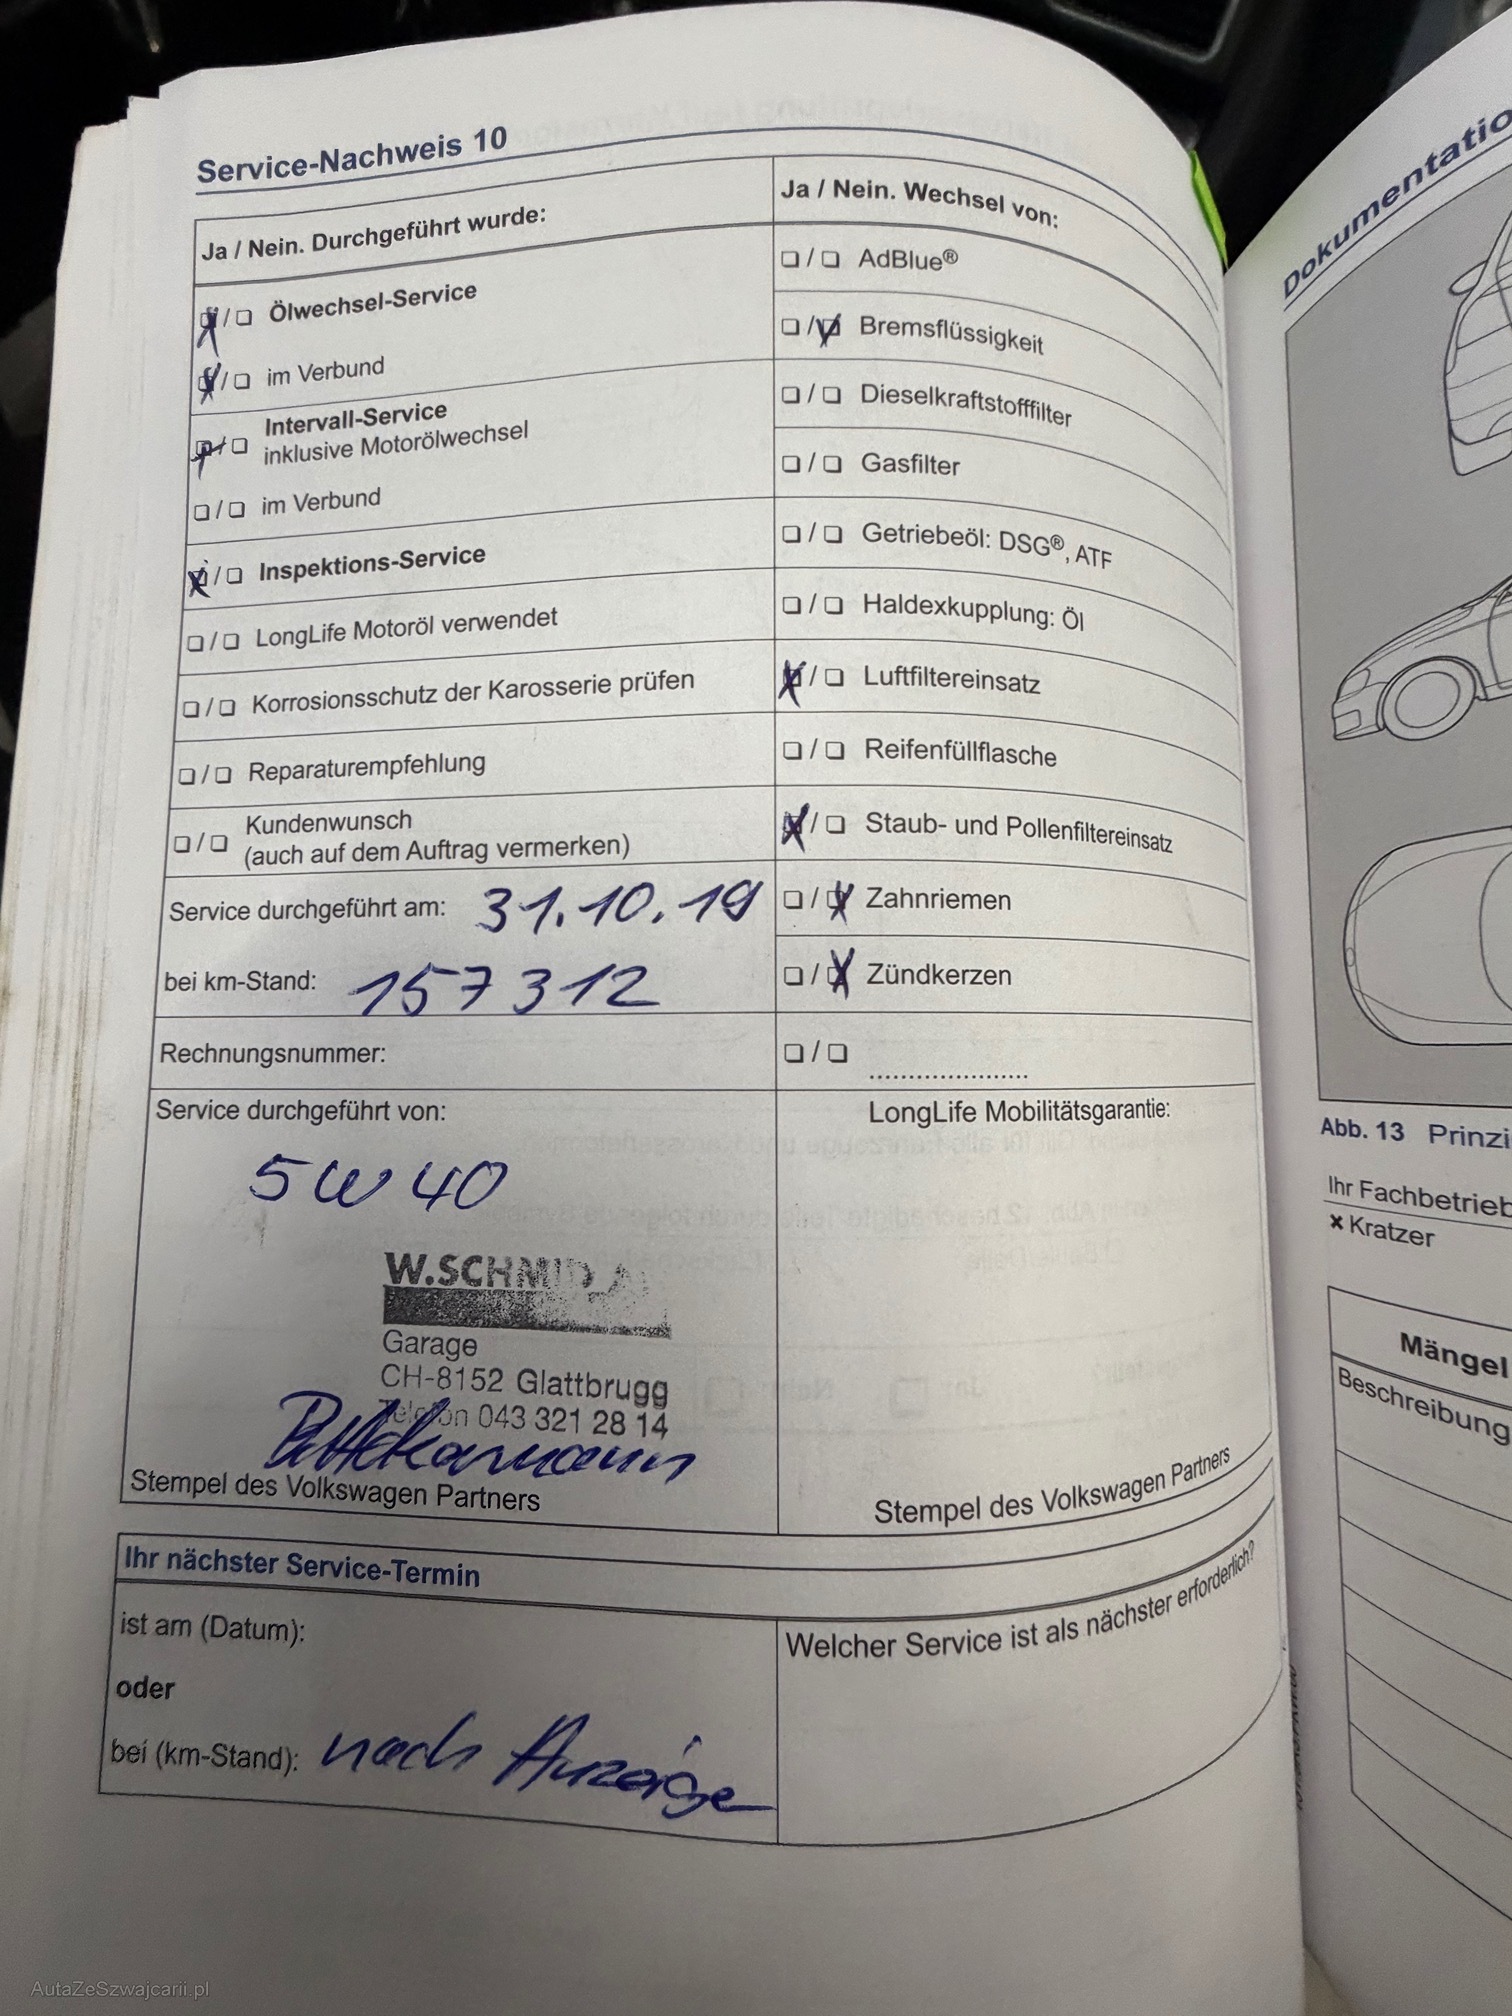 Service-Nachweis 10
Ja / Nein. Durchgeführt wurde:
❏ / ❏ Ölwechsel-Service
❏ / ❏ im Verbund
❏ / ❏ Intervall-Service
inklusive Motorölwechsel
❏ / ❏ im Verbund
❏ / ❏ Inspektions-Service
❏ / ❏ LongLife Motoröl verwendet
❏ / ❏ Korrosionsschutz der Karosserie prüfen
❏ / ❏ Reparaturempfehlung
❏ / ❏ Kundenwunsch
(auch auf dem Auftrag vermerken)
Service durchgeführt am: 31.10.19
bei km-Stand: 157 312
Rechnungsnummer:
Service durchgeführt von:
5W40
W.SCHMID
Garage
CH-8152 Glattbrugg
Telefon 043 321 28 14
Stempel des Volkswagen Partners
Ja / Nein. Wechsel von:
❏ / ❏ AdBlue®
❏ / ❏ Bremsflüssigkeit
❏ / ❏ Dieselkraftstofffilter
❏ / ❏ Gasfilter
❏ / ❏ Getriebeöl: DSG®, ATF
❏ / ❏ Haldexkupplung: Öl
❏ / ❏ Luftfiltereinsatz
❏ / ❏ Reifenfüllflasche
❏ / ❏ Staub- und Pollenfiltereinsatz
❏ / ❏ Zahnriemen
❏ / ❏ Zündkerzen
❏ / ❏ ......................
LongLife Mobilitätsgarantie:
Stempel des Volkswagen Partners
Ihr nächster Service-Termin
ist am (Datum):
oder
bei (km-Stand): nach Anzeige
Welcher Service ist als nächster erforderlich?
Dokumentatio
Abb. 13 Prinzi
Ihr Fachbetrieb
× Kratzer
Mängel
Beschreibung
AutaZeSzwajcarii.pl